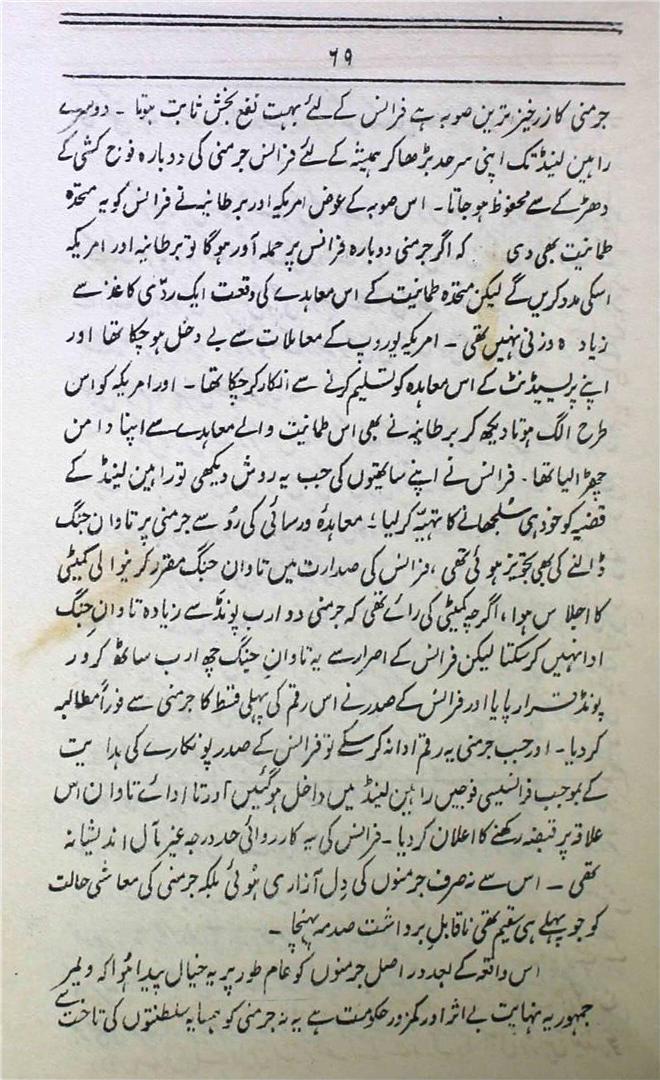 ۶۹
جرمنی کا زرخیز ترین صوبہ ہے فرانس کے لئے بہت نفع بخش ثابت ہوتا ۔ دوسرے
راہین لینڈ تک اپنی سرحد بڑھا کر ہمیشہ کے لئے فرانس جرمنی کی دوبارہ فوج کشی کے
دھڑکے سے محفوظ ہو جاتا ۔ اس صوبہ کے عوض امریکہ اور برطانیہ نے فرانس کو یہ متحدہ
طمانیت بھی دی کہ اگر جرمنی دوبارہ فرانس پر حملہ آور ہو گا تو برطانیہ اور امریکہ
اسکی مدد کریں گے لیکن متحدہ طمانیت کے اس معاہدے کی وقعت ایک ردّی کاغذ سے
زیادہ وزنی نہیں تھی ۔ امریکہ یوروپ کے معاملات سے بے دخل ہو چکا تھا اور
اپنے پریسیڈنٹ کے اس معاہدہ کو تسلیم کرنے سے انکار کر چکا تھا ۔ اور امریکہ کو اس
طرح الگ ہوتا دیکھ کر برطانیہ نے بھی اس طمانیت والے معاہدے سے اپنا دامن
چھڑا لیا تھا ۔ فرانس نے اپنے ساتھیوں کی جب یہ روش دیکھی تو راہین لینڈ کے
قضیہ کو خود ہی سُلجھانے کا تہیّہ کر لیا ؛ معاہدۂ ورسائی کی رُو سے جرمنی پر تاوان جنگ
ڈالنے کی بھی تجویز ہوئی تھی ، فرانس کی صدارت میں تاوان جنگ مقرر کرنیوالی کمیٹی
کا اجلاس ہوا ، اگرچہ کمیٹی کی رائے تھی کہ جرمنی دو ارب پونڈ سے زیادہ تاوانِ جنگ
ادا نہیں کر سکتا لیکن فرانس کے اصرار سے یہ تاوانِ جنگ چھ ارب ساٹھ کرور
پونڈ قرار پایا اور فرانس کے صدر نے اس رقم کی پہلی قسط کا جرمنی سے فوراً مطالبہ
کر دیا ۔ اور جب جرمنی یہ رقم ادا نہ کر سکے تو فرانس کے صدر پونکارے کی ہدایت
کے بموجب فرانسیسی فوجیں راہین لینڈ میں داخل ہو گئیں اور تا ادائے تاوان اس
علاقہ پر قبضہ رکھنے کا اعلان کر دیا ۔ فرانس کی یہ کارروائی حد درجہ غیر مآل اندیشانہ
تھی ۔ اس سے نہ صرف جرمنوں کی دِل آزاری ہُوئی بلکہ جرمنی کی معاشی حالت
کو جو پہلے ہی سقیم تھی ناقابلِ برداشت صدمہ پہنچا ۔
اس واقعہ کے بعد در اصل جرمنوں کو عام طور پر یہ خیال پیدا ہُوا کہ ویمر
جمہوریہ نہایت بے اثر اور کمزور حکومت ہے یہ نہ جرمنی کو ہمسایہ سلطنتوں کی تاخت سے